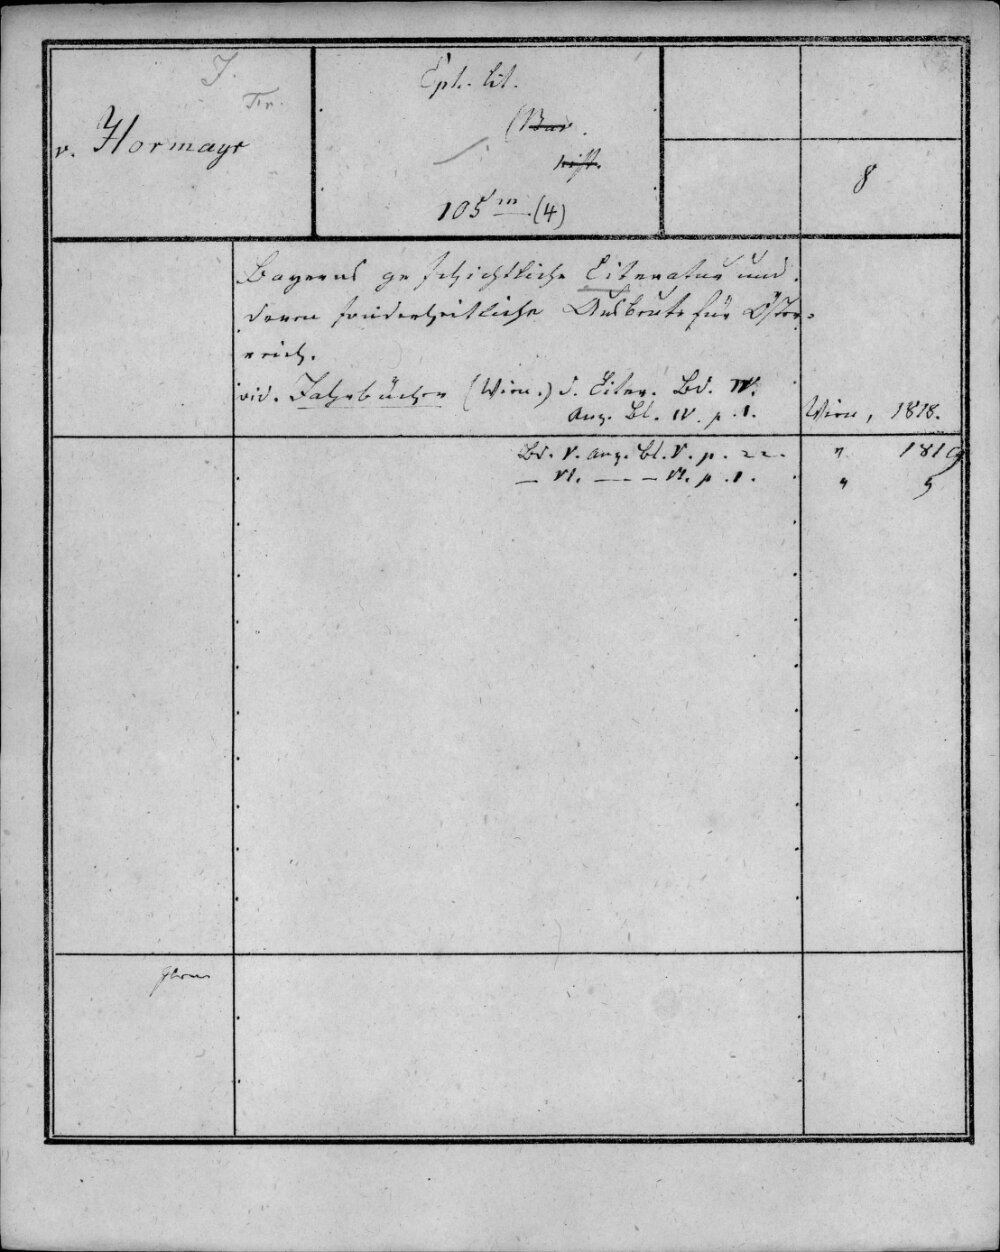 J.
Fr.
v. Hormayr
Eph. lit.
(Bav.
hist.
105 m (4)
8
Bayerns geschichtliche Literatur und
deren sonderheitliche Ausbeute für Öster-
reich.
vid. Jahrbücher (Wien.) d. Liter. Bd. IV.
Anz. Bl. IV. p. 1.
Wien, 1818.
Bd. V. Anz. Bl. V. p. 22. " 1819
— VI. — — VI. p. 1. " "